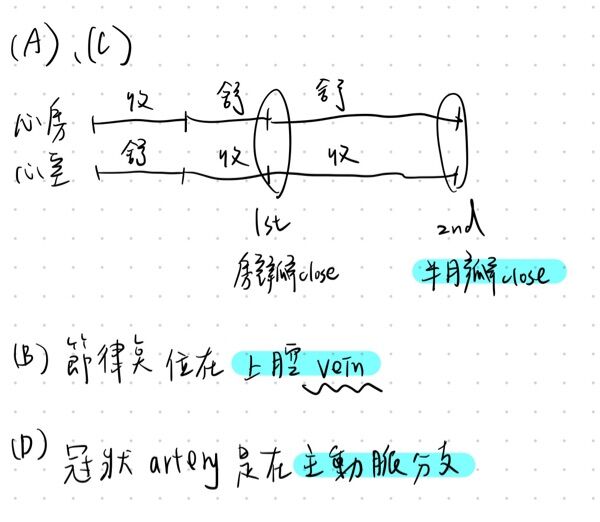 (A)、(C)
收 舒 舒
心房
心室
舒 收 收
1st 2nd
房室瓣close 半月瓣close
(B) 節律點位在上腔vein
(D) 冠狀artery是在主動脈分支